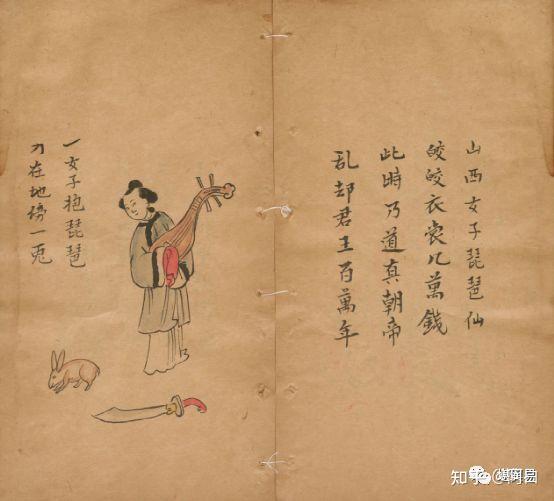 山西女子琵琶仙
皎皎衣裳凡萬錢
此時乃道真朝帝
乱却君王百萬年
一女子抱琵琶
刀在地傍一兎
知乎